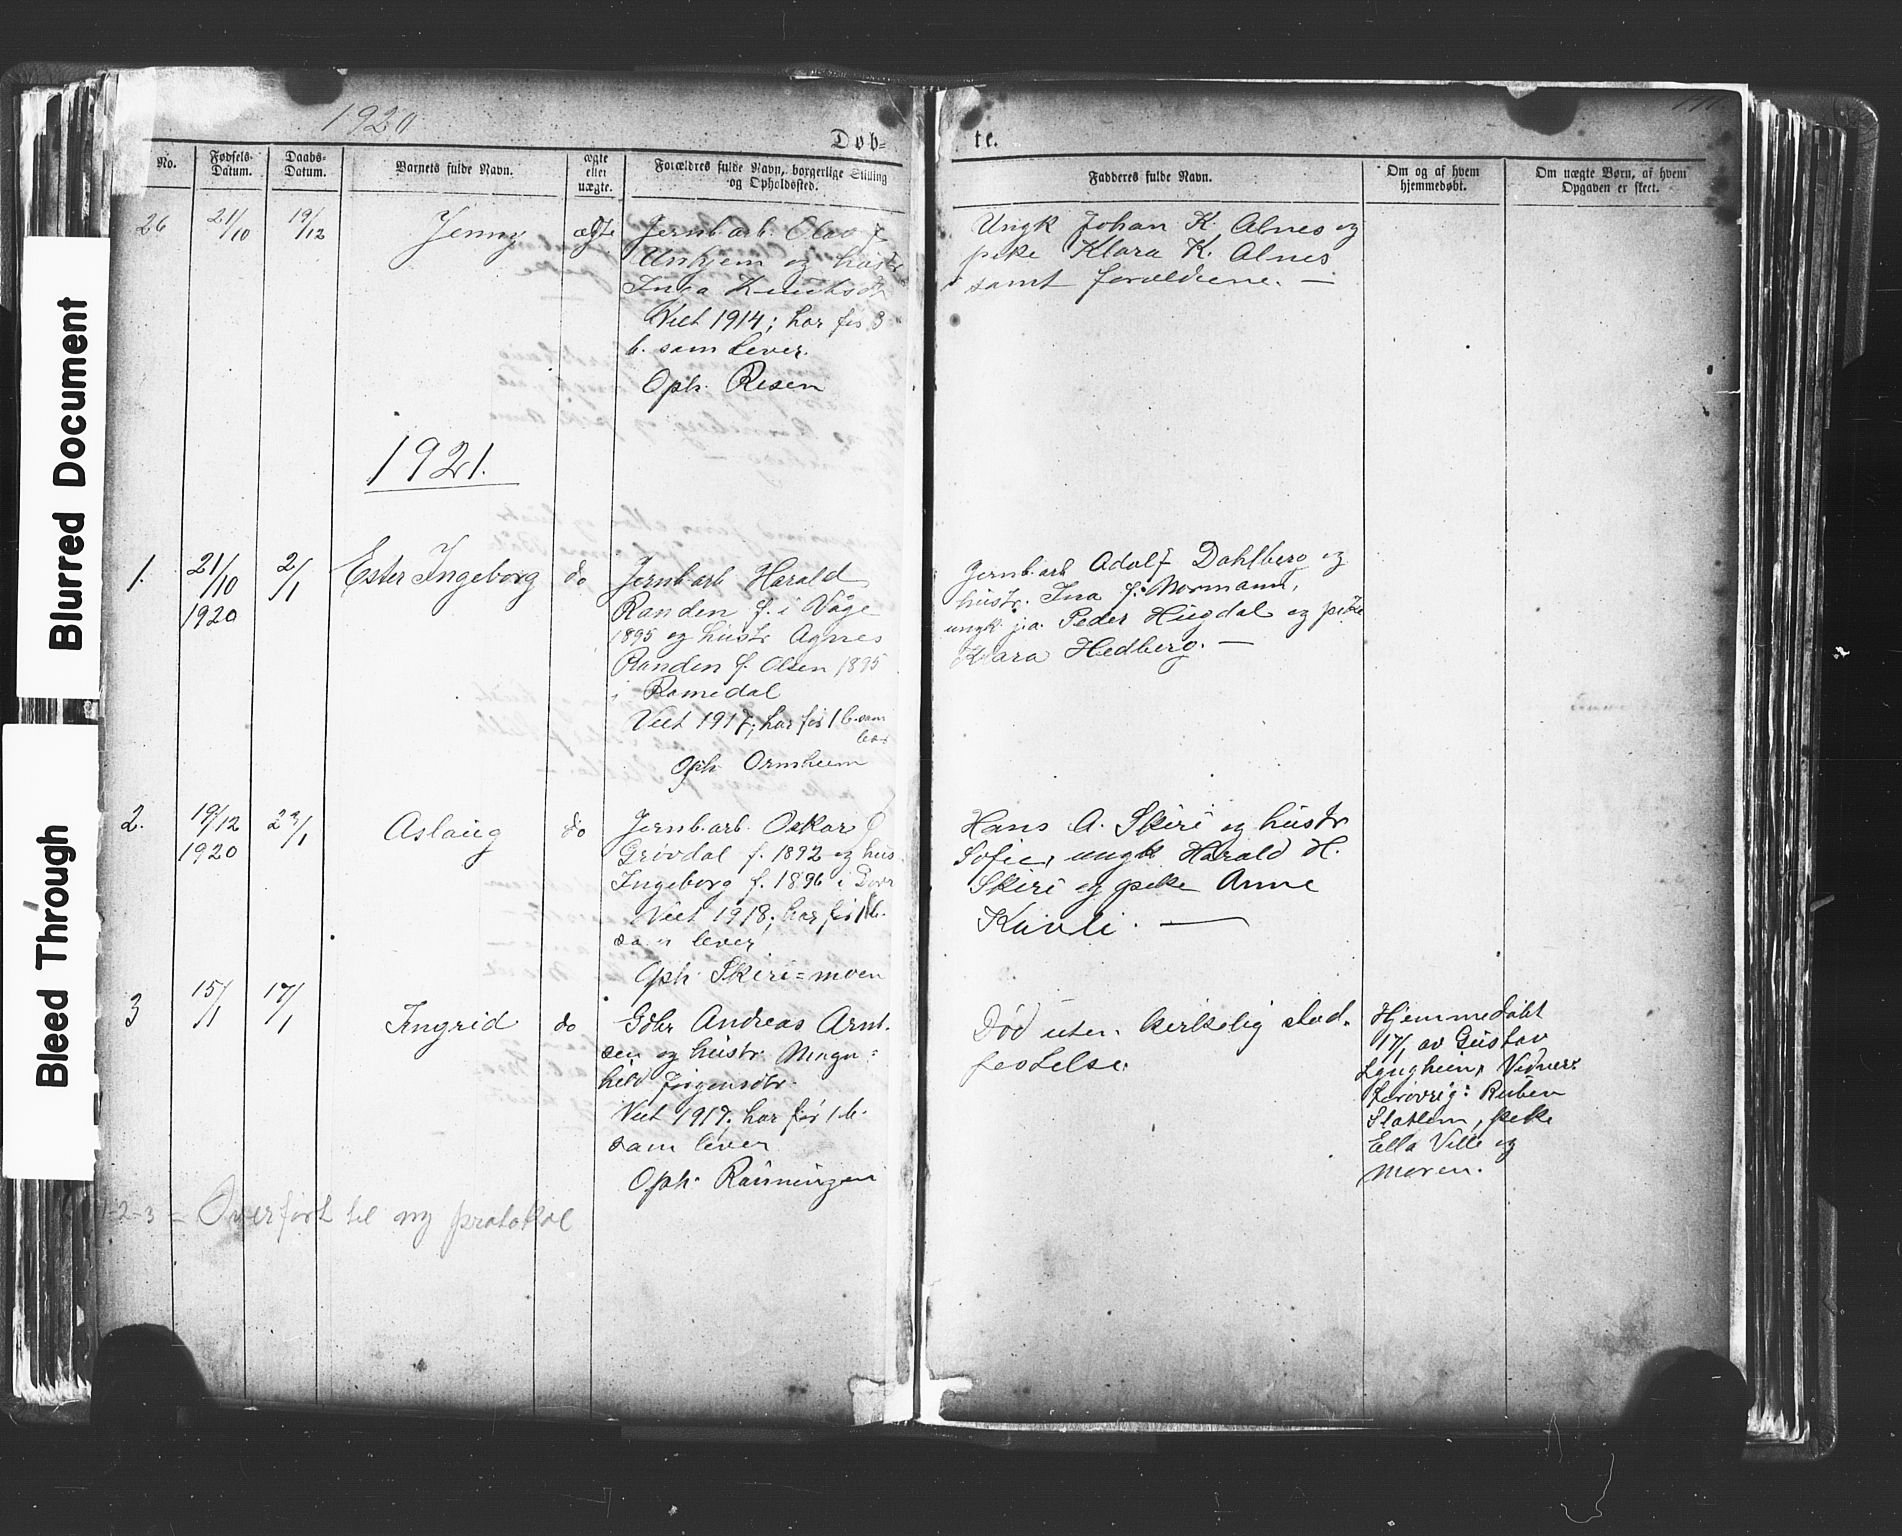 Blurred Document
Bleed Through
1920
Døb-
te.
No.
Fødsels-Datum.
Daabs-Datum.
Barnets fulde Navn.
ægte eller uægte.
Forældres fulde Navn, borgerlige Stilling og Opholdssted.
Fadderes fulde Navn.
Om og af hvem hjemmedøbt.
Om uægte Børn, af hvem Opgaven er skeet.
26
21/10
19/12
Jenny
ægte
Jernb.arb. Olav
og hustr
Inga
Viet 1914; har før 3
b. som lever.
Oph. Resen
Ungk Johan K. Alnes og
pike Klara K. Alnes
samt forældrene. —
1921.
1.
21/10
1920
2/1
Ester Ingeborg
do
Jernb.arb Harald
Randen f. i Våge
1895 og hustr Agnes
Randen f. Olsen 1895
i Romedal
Viet 1917; har før 1 b. som
lever
Oph. Ormheim
Jernb.arb Adolf Dahlberg og
hustr. Ina f. Normann,
ungk. Peder Hugdal og pike
Klara Hedberg. —
2.
19/12
1920
23/1
Aslaug
do
Jernb.arb. Oskar
Grøvdal f. 1892 og hus.
Ingeborg f. 1896 i
Viet 1918; har før 1 b.
som lever
Oph. Skiri=moen
Hans A. Skiri og hustr
Sofie, ungk Harald H.
Skiri og pike Anne
Kavli. —
3
15/1
17/1
Ingrid
do
Gdbr Andreas Arnt.
sen og hustr. Magn:
hild Jørgensdtr.
Viet 1917. har før 1 b.
som lever
Oph. Rønningen
Død uten kirkelig stad.
festelse.
Hjemmedøbt
17/1 av Gustav
Lyngheim, Vidner:
Ruben
pike
Ella Ville og
moren.
1-2-3 = Overført til ny protokol